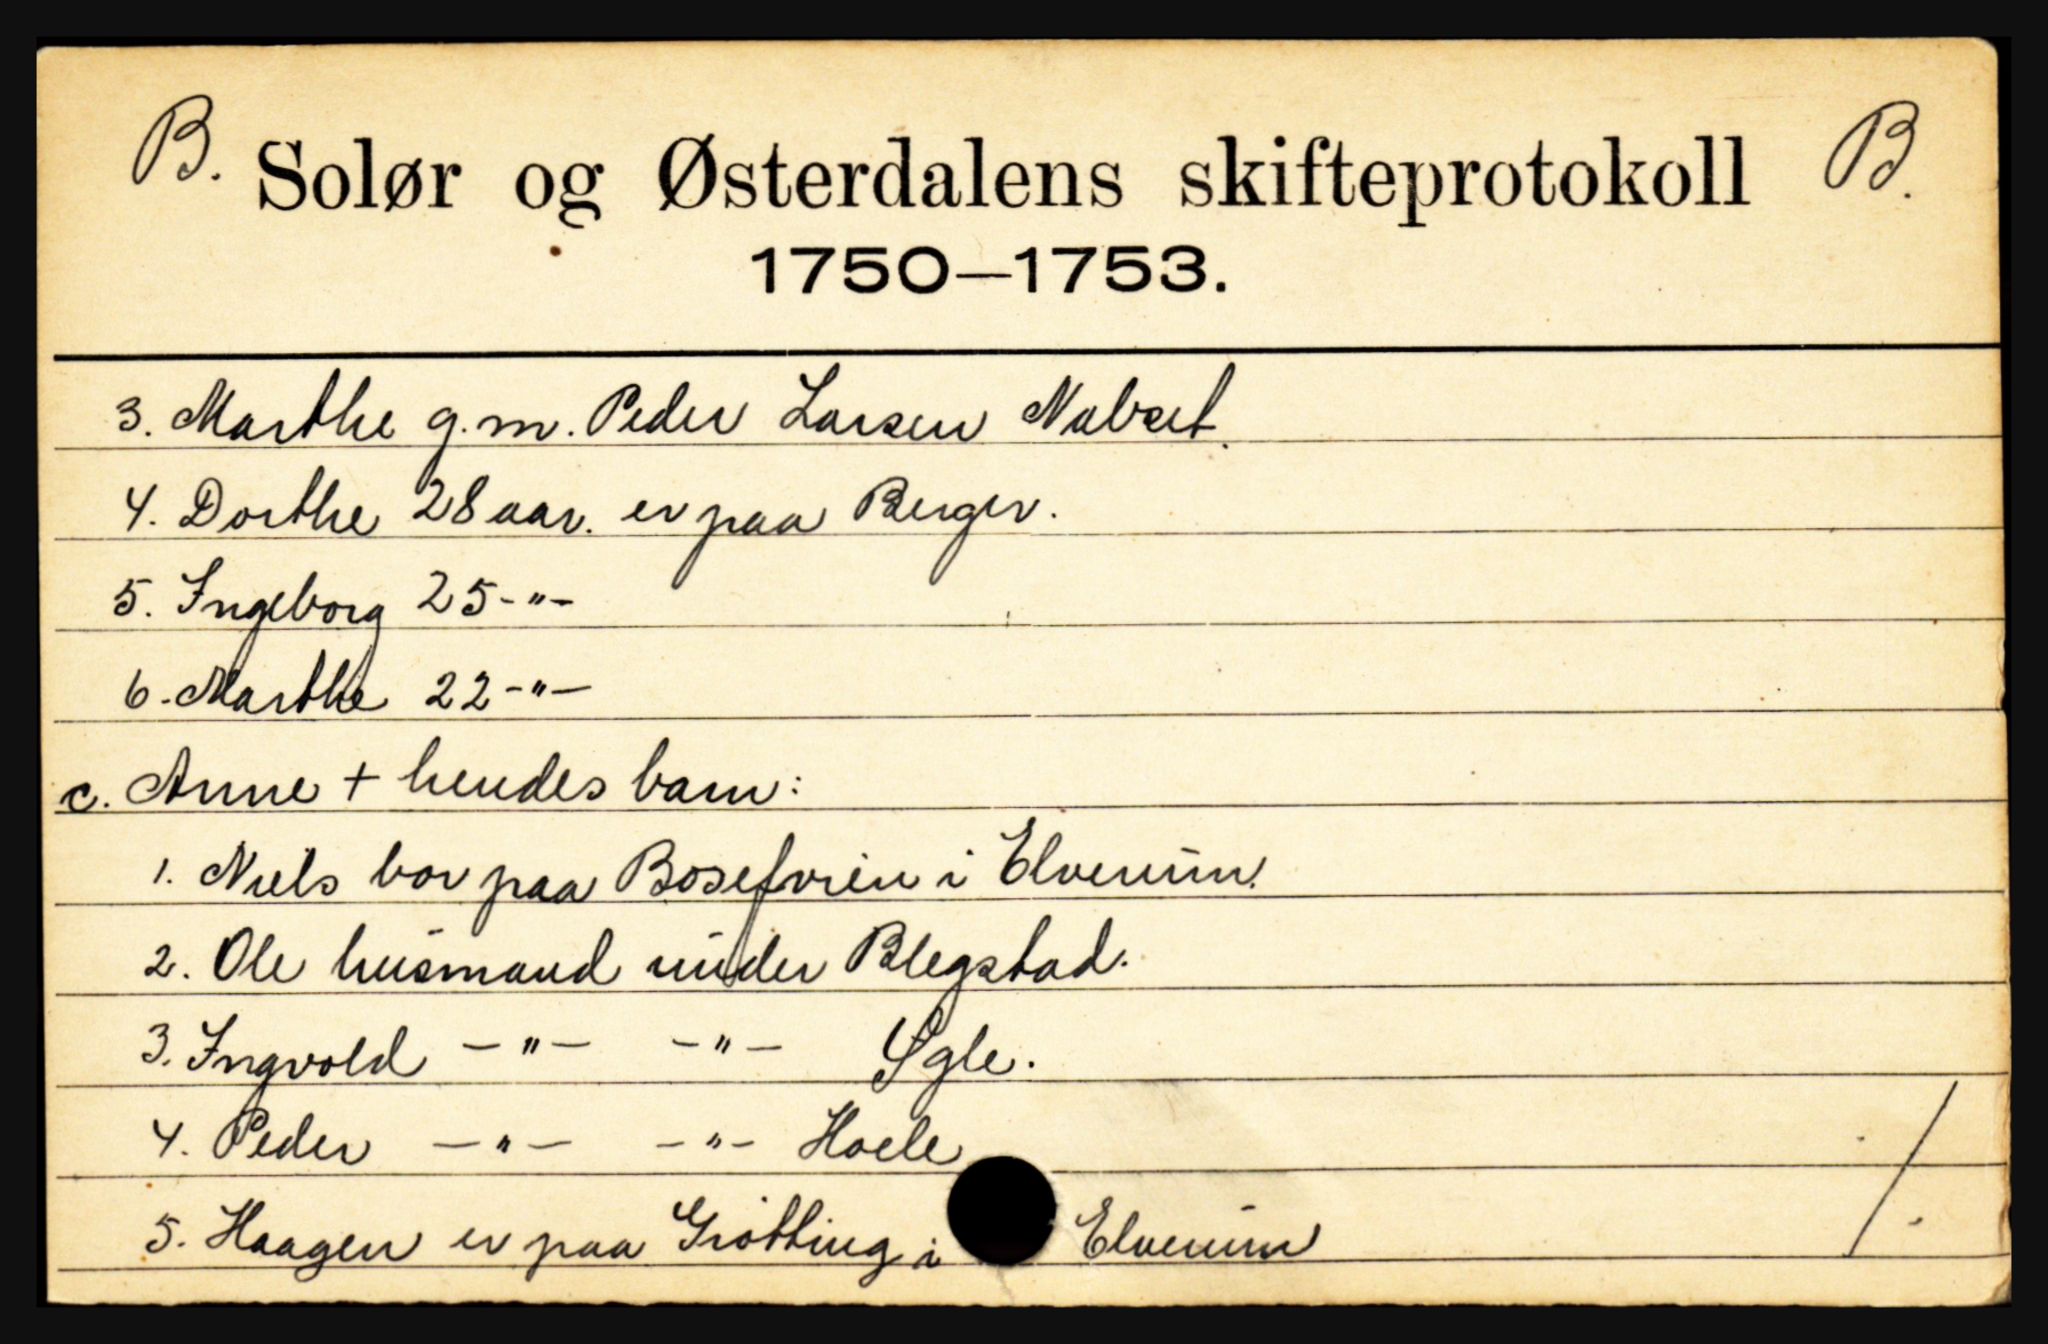 B. Solør og Østerdalens skifteprotokoll B.
1750—1753.
3. Marthe g.m. Peder Larsen Nabset.
4. Dorthe 28 aar. er paa Berger.
5. Ingeborg 25 -"-
6. Marthe 22 -"-
c. Anne + hendes barn:
1. Niels bor paa i Elverum.
2. Ole husmand under Blegstad.
3. Ingvold -"- -"- Øgle.
4. Peder -"- -"- Hoele
5. Haagen er paa Grøtting i Elverum
/.